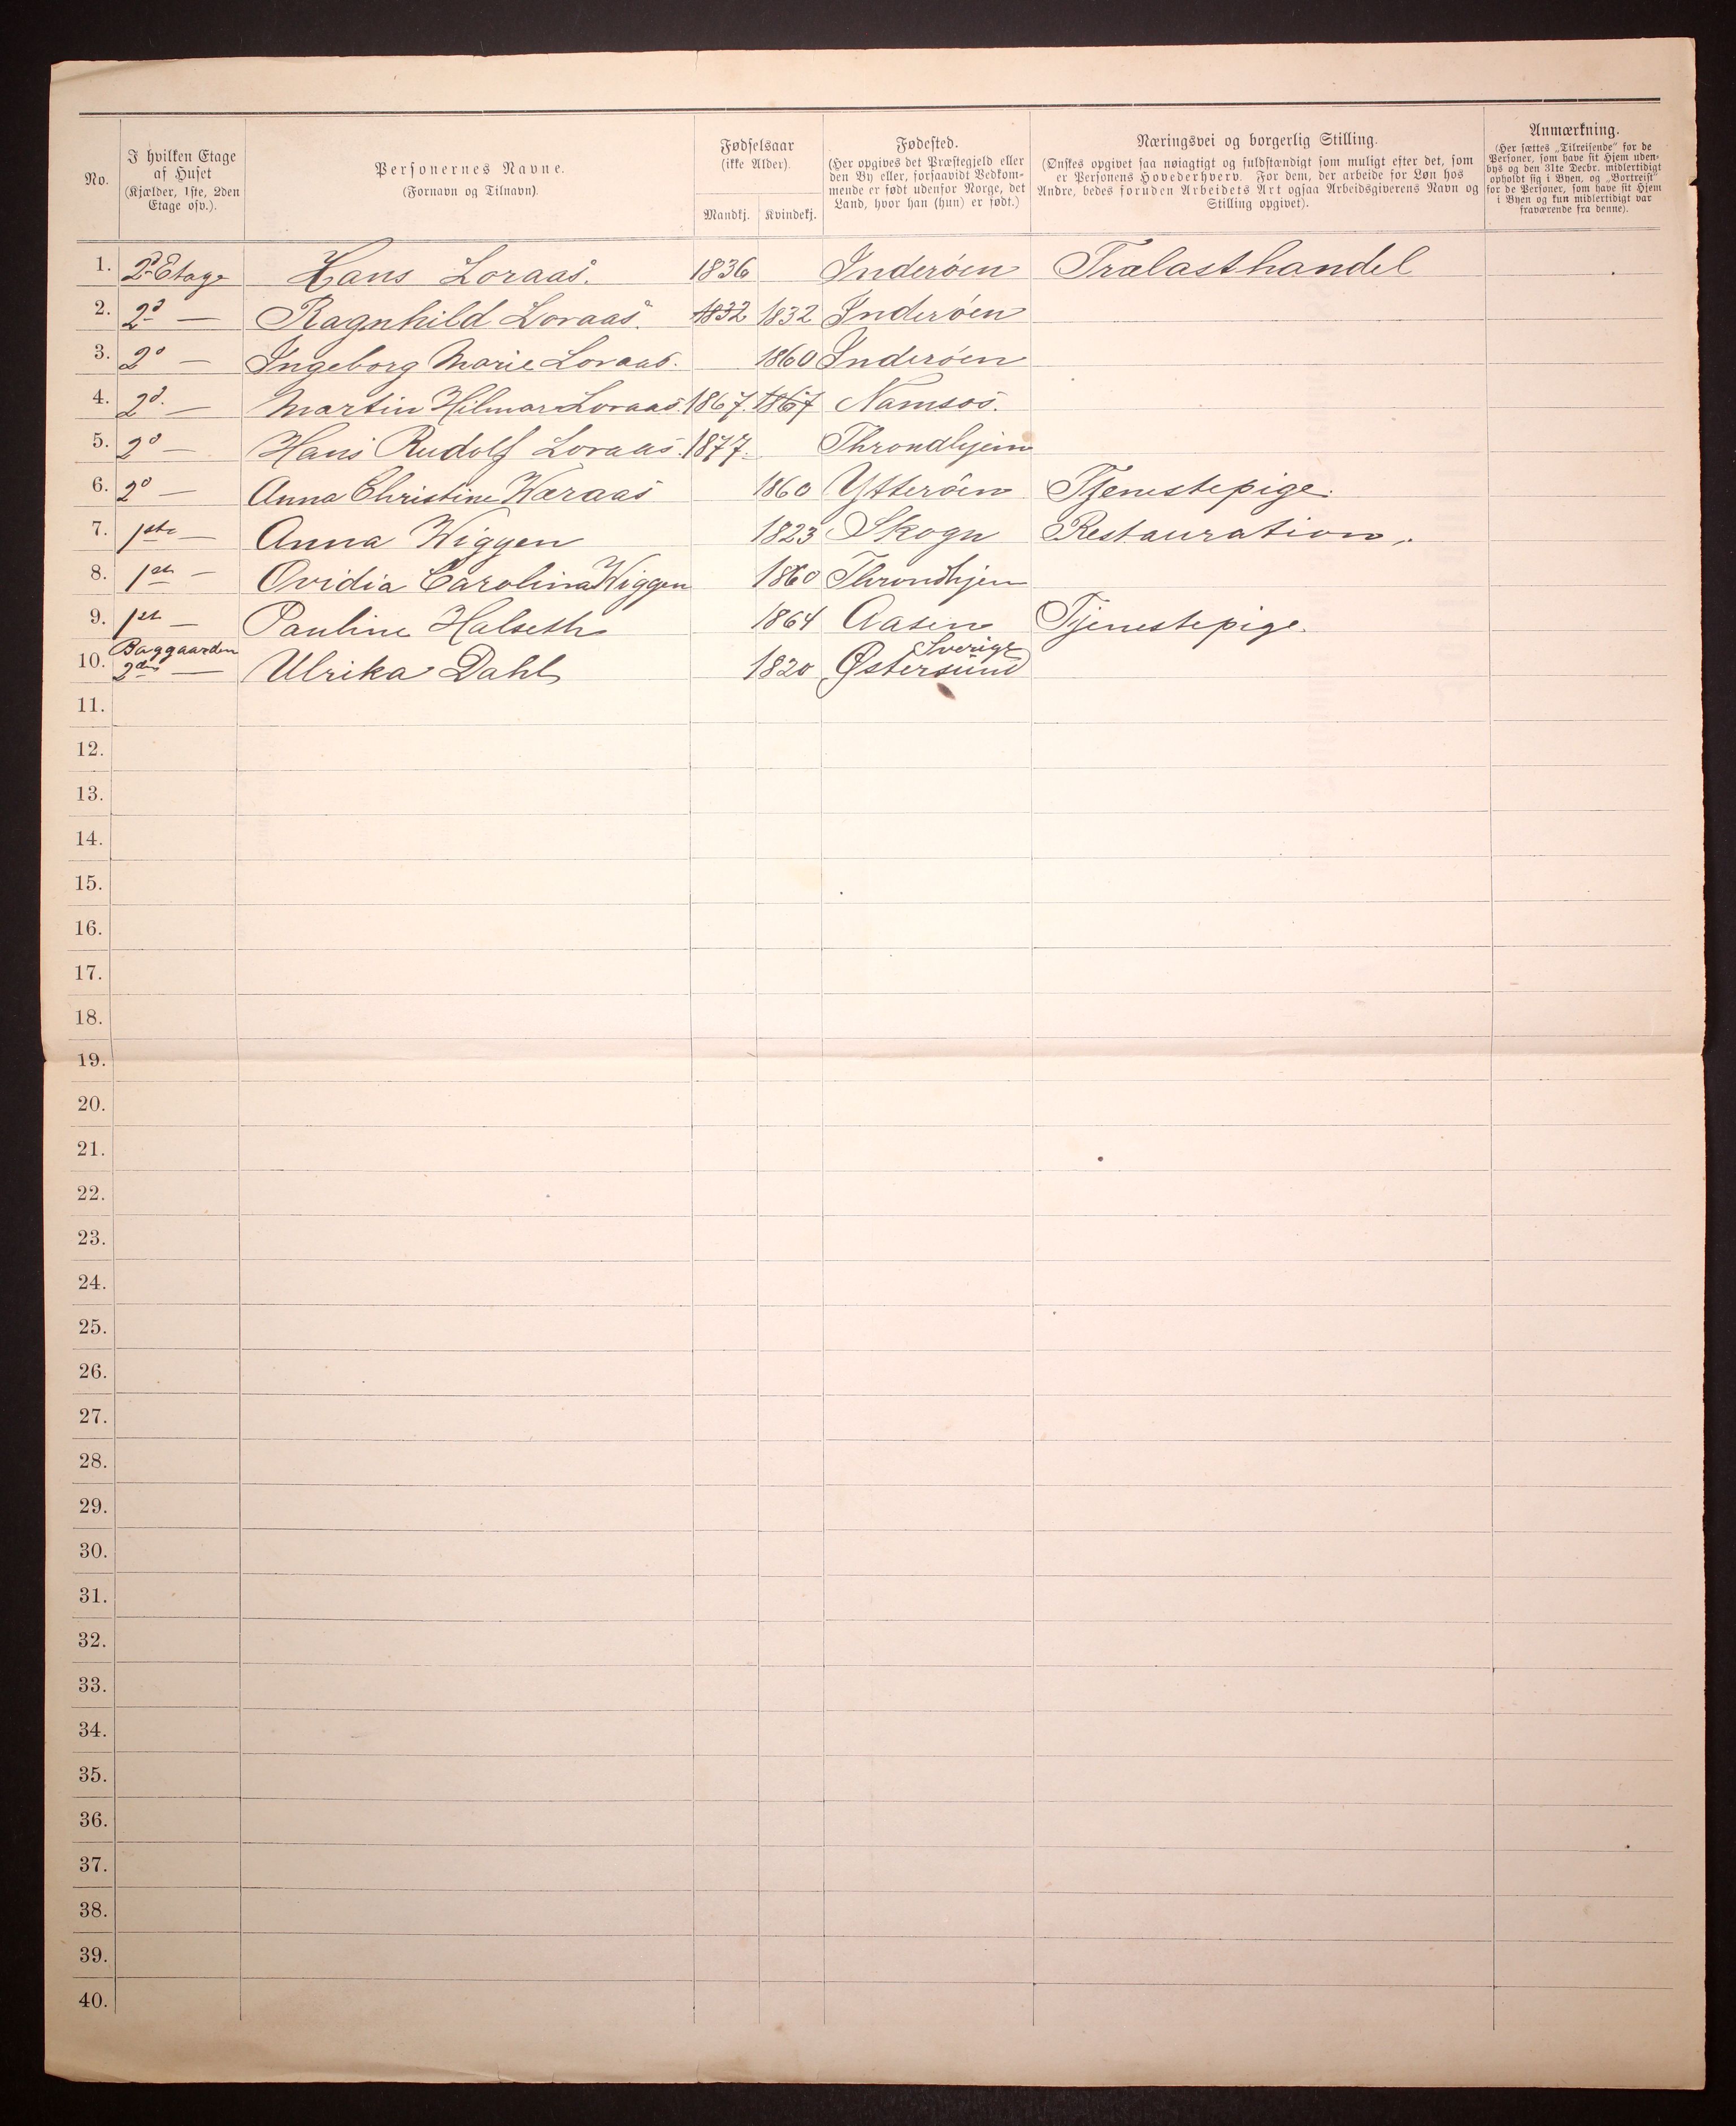 No.
I hvilken Etage
af Huset
(Kjælder, 1ste, 2den
Etage osv.).
Personernes Navne.
(Fornavn og Tilnavn).
Fødselsaar
(ikke Alder).
Mandkj. Kvindekj.
Fødested.
(Her opgives det Præstegjeld eller
den By eller, forsaavidt Vedkom-
mende er født udenfor Norge, det
Land, hvor han (hun) er født.)
Næringsvei og borgerlig Stilling.
(Ønskes opgivet saa nøiagtigt og fuldstændigt som muligt efter det, som
er Personens Hovederhverv. For dem, der arbeide for Løn hos
Andre, bedes foruden Arbeidets Art ogsaa Arbeidsgiverens Navn og
Stilling opgivet).
Anmærkning.
(Her sættes „Tilreisende" for de
Personer, som have sit Hjem uden-
bys og den 31te Decbr. midlertidigt
opholdt sig i Byen, og „Bortreist"
for de Personer, som have sit Hjem
i Byen og kun midlertidigt var
fraværende fra denne).
1. 2d Etage Hans Loraas. 1836 Inderöen Trælasthandel
2. 2d — Ragnhild Loraas. 1832 1832 Inderöen
3. 2d — Ingeborg Marie Loraas. 1860 Inderöen
4. 2d. — Martin Hilmar Loraas. 1867. 1867 Namsos.
5. 2d — Hans Rudolf Loraas. 1877. Throndhjem
6. 2d — Anna Christine Waraas 1860 Ytteröen Tjenestepige.
7. 1ste — Anna Wiggen 1823 Skogn Restauration.
8. 1ste — Ovidia Carolina Wiggen 1860 Throndhjem
9. 1ste — Pauline Halseth 1864 Aasen Tjenestepige.
Baggaarden Sverige
10. 2den — Ulrika Dahl 1820 Østersund
11.
12.
13.
14.
15.
16.
17.
18.
19.
20.
21.
22.
23.
24.
25.
26.
27.
28.
29.
30.
31.
32.
33.
34.
35.
36.
37.
38.
39.
40.